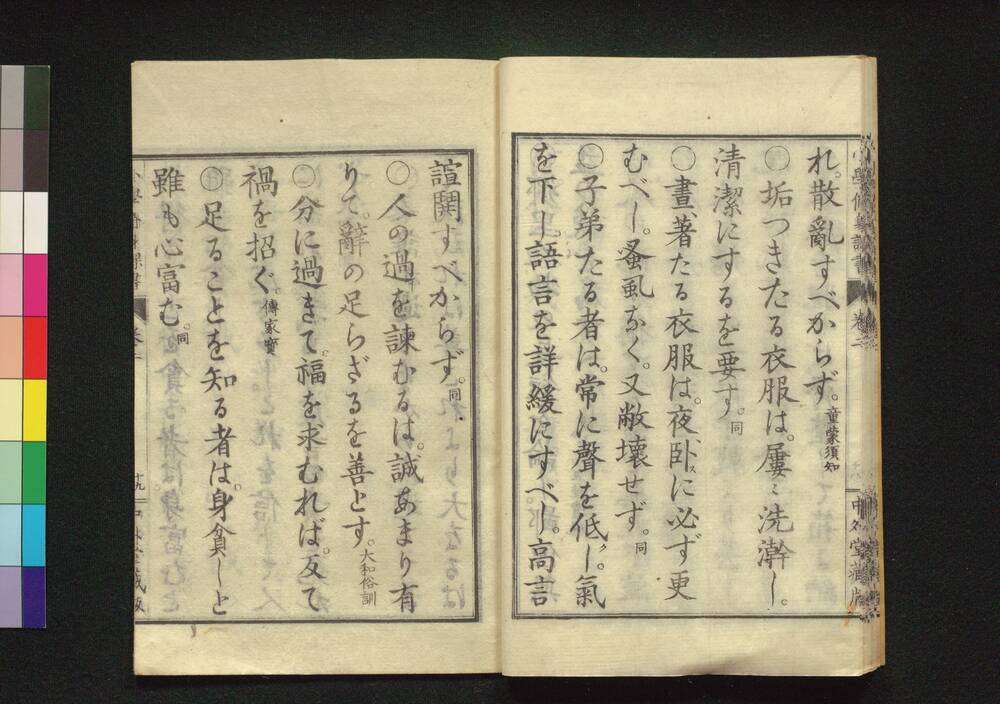 れ。散亂すべからず。童蒙須知
○垢つきたる衣服は。屢〻洗澣し。
清潔にするを要す。同
○晝、著たる衣服は。夜臥スに必ず更
むべし。蚤虱なく。又敝壞せず。同
○子弟たる者は。常に聲を低クし。氣
を下し語言を詳緩にすべし。高言
諠鬨すべからず。同
○人の過を諫むるは。誠あまり有
りて。辭の足らざるを善とす。大和俗訓
○分に過きて。福を求むれば。反て
禍を招ぐ。傳家寶
○足ることを知る者は。身貧しと
雖も心富む。同
十九